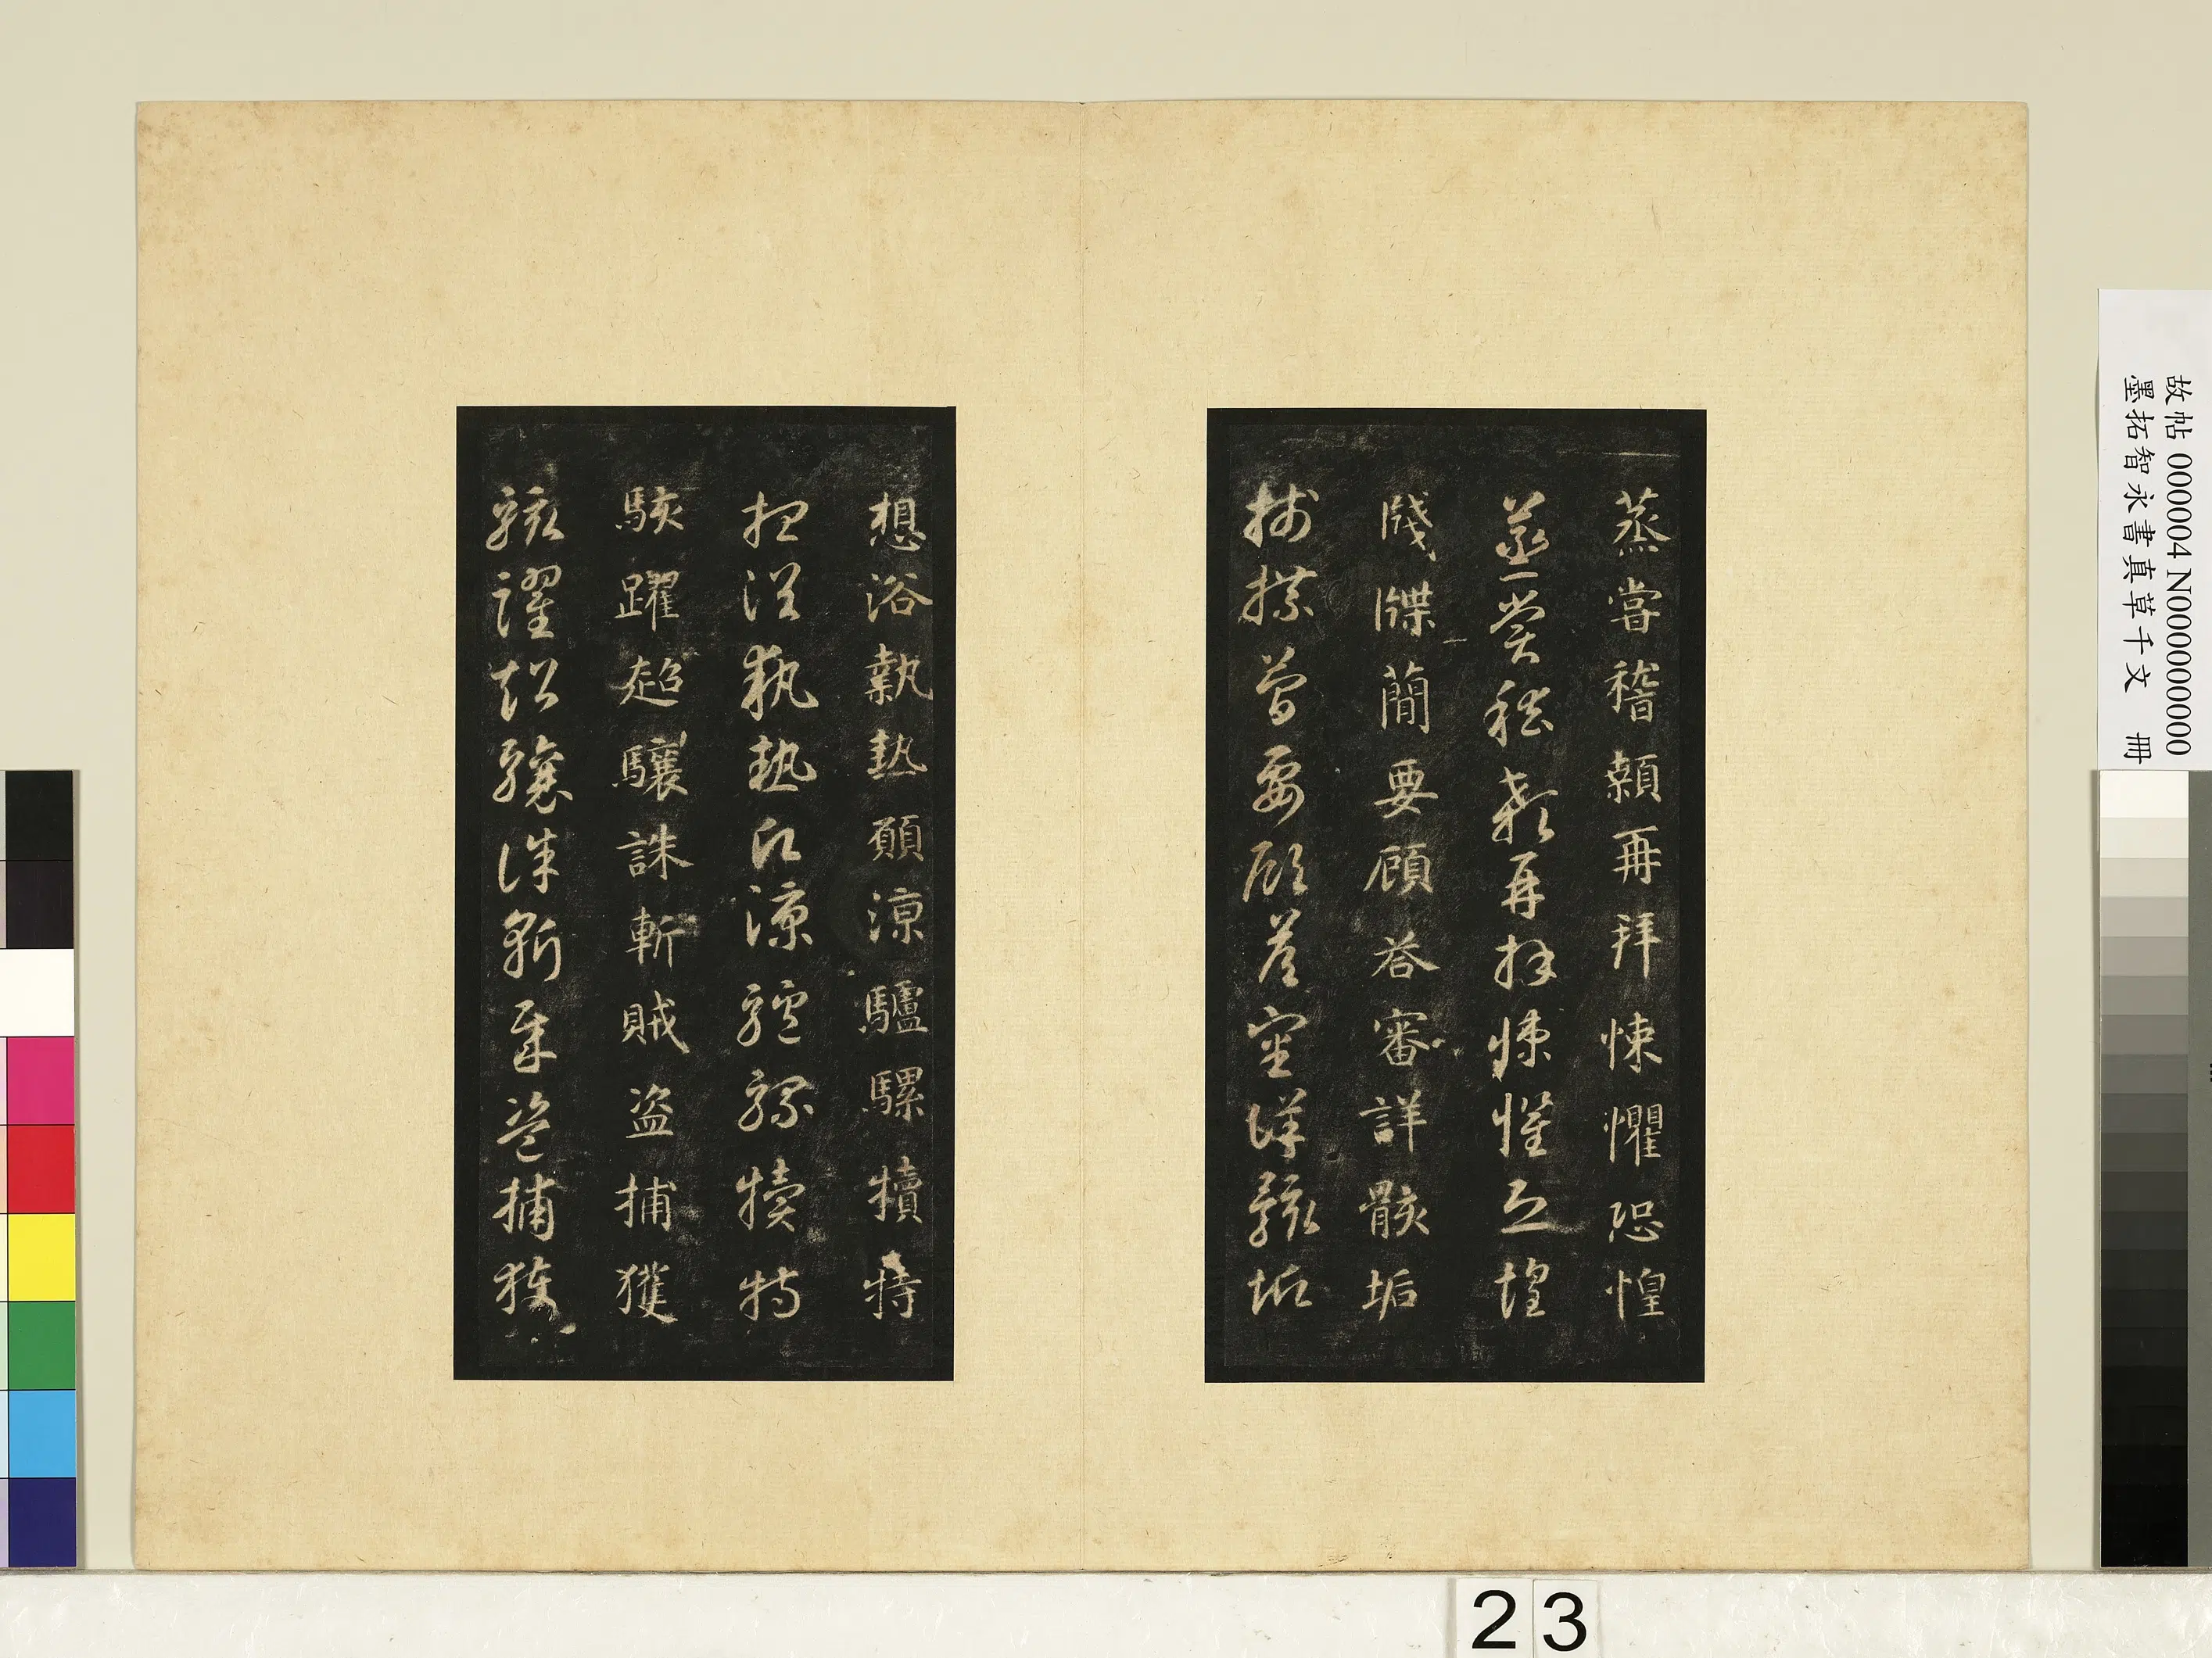 蒸甞稽顙再拜悚懼恐惶
蒸甞稽顙再拜悚懼恐惶
牋牒簡要顧荅審詳骸垢
牋牒簡要顧荅審詳骸垢
想浴執熱願涼驢騾犢特
想浴執熱願涼驢騾犢特
駭躍超驤誅斬賊盜捕獲
駭躍超驤誅斬賊盜捕獲
故帖 000004 N000000000
墨拓智永書真草千文 冊
23